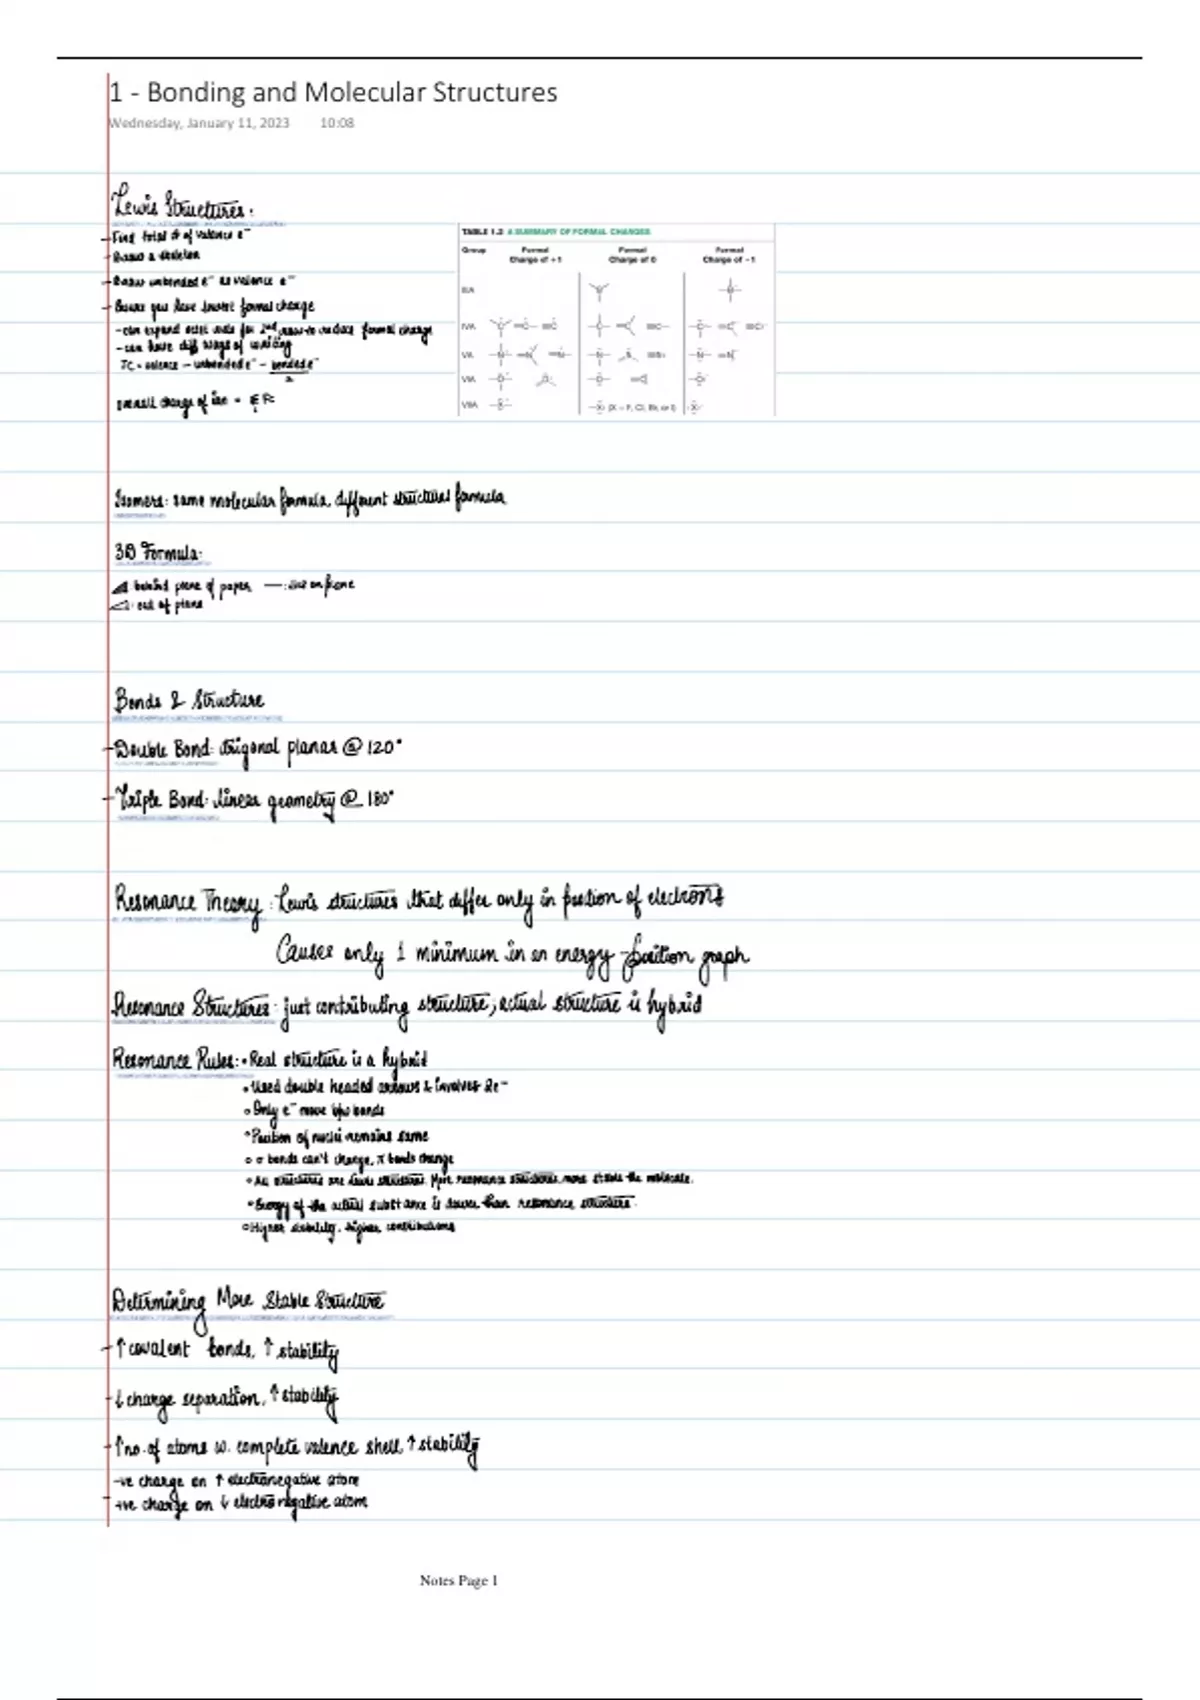 1 - Bonding and Molecular Structures
Wednesday, January 11, 2023 10:08
Lewis Structures:
- Find total # of valence e⁻
- Draw a skeleton
- Draw unbonded e⁻ as valence e⁻
- Ensure you have lowest formal charge
- can expand octet rule for 2nd row to reduce formal charge
- can have diff ways of writing
FC = valence - unbonded e⁻ - bonded e⁻
2
overall charge of ion = ΣFC
TABLE 1.2 A SUMMARY OF FORMAL CHARGES
Group Formal Charge of +1 Formal Charge of 0 Formal Charge of -1
IIIA
IVA
VA
VIA
VIIA (X = F, Cl, Br, or I)
Isomers: same molecular formula, different structural formula
3D Formula:
: behind plane of paper — : line on plane
: out of plane
Bonds & Structure
- Double Bond: trigonal planar @ 120°
- Triple Bond: linear geometry @ 180°
Resonance Theory: Lewis structures that differ only in position of electrons
Causes only 1 minimum in an energy-position graph
Resonance Structures: just contributing structure, actual structure is hybrid
Resonance Rules: • Real structure is a hybrid
• Used double headed arrows & involves 2e⁻
• Only e⁻ move b/w bonds
• Position of nuclei remains same
• σ bonds can't change, π bonds change
• All structures are Lewis structures. More resonance structures, more stable the molecule.
• Energy of the actual substance is lower than resonance structure.
• Higher stability, higher contributions
Determining More Stable Structure
- ↑ covalent bonds, ↑ stability
- ↓ charge separation, ↑ stability
- ↑ no. of atoms w. complete valence shell, ↑ stability
-ve charge on ↑ electronegative atom
- +ve charge on ↓ electronegative atom
Notes Page 1